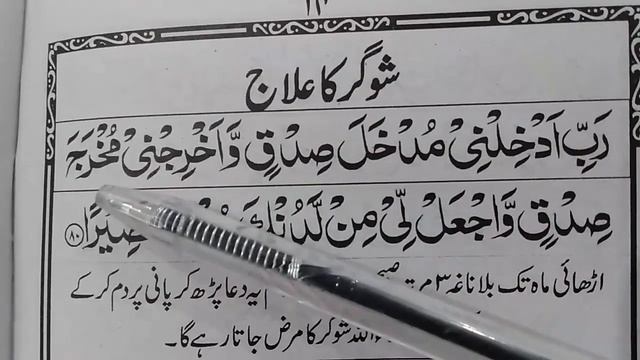 ۱۳
شوگر کا علاج
رَبِّ اَدْخِلْنِیْ مُدْخَلَ صِدْقٍ وَّاَخْرِجْنِیْ مُخْرَجَ
صِدْقٍ وَّاجْعَلْ لِّیْ مِنْ لَّدُنْكَ صِیْرًا ﴿۸۰﴾
اڑھائی ماہ تک بلا ناغہ ۳ مرتبہ صبح یہ دعا پڑھ کر پانی پر دم کر کے
اللہ شوگر کا مرض جاتا رہے گا۔